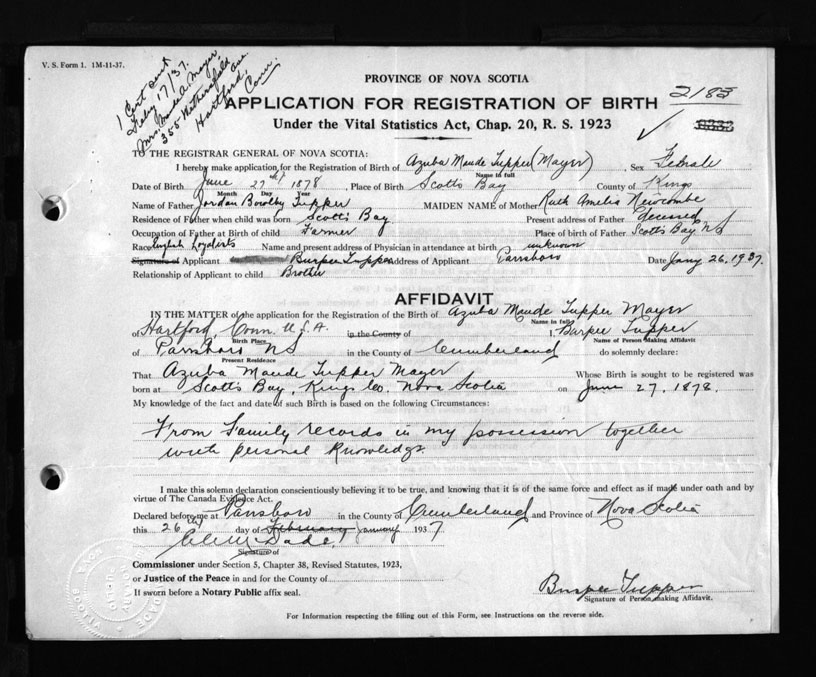 V. S. Form 1. 1M-11-37.
1 Cert sent
Feby 17/37.
Mrs. Maude A. Mayer
355 Wethersfield Ave.
Hartford,
Conn.
PROVINCE OF NOVA SCOTIA
2183
APPLICATION FOR REGISTRATION OF BIRTH
Under the Vital Statistics Act, Chap. 20, R. S. 1923
TO THE REGISTRAR GENERAL OF NOVA SCOTIA:
I hereby make application for the Registration of Birth of Azuba Maude Tupper (Mayer) Sex Female
Name in full
Date of Birth June 27th 1878, Place of Birth Scotts Bay County of Kings
Month Day Year
Name of Father Jordan Bowlby Tupper MAIDEN NAME of Mother Ruth Amelia Newcombe
Residence of Father when child was born Scotts Bay Present address of Father deceased
Occupation of Father at Birth of child Farmer Place of Birth of Father Scotts Bay N S
Race English Loyalists Name and present address of Physician in attendance at birth unknown
Signature of Applicant Burpee Tupper Address of Applicant Parrsboro Date Jany 26, 1937.
Relationship of Applicant to child Brother
AFFIDAVIT
IN THE MATTER of the application for the Registration of Birth of Azuba Maude Tupper Mayer
Name in full
of Hartford, Conn. U.S.A. in the County of I, Burpee Tupper
Birth Place Name of Person Making Affidavit
of Parrsboro NS in the County of Cumberland do solemnly declare:
Present Residence
That Azuba Maude Tupper Mayer Whose Birth is sought to be registered was
born at Scotts Bay, Kings Co. Nova Scotia on June 27, 1878.
My knowledge of the fact and date of such Birth is based on the following Circumstances:
From Family records in my possession together
with personal knowledge.
I make this solemn declaration conscientiously believing it to be true, and knowing that it is of the same force and effect as if made under oath and by
virtue of The Canada Evidence Act.
Declared before me at Parrsboro in the County of Cumberland and Province of Nova Scotia
this 26th day of February January 1937
Signature of
Commissioner under Section 5, Chapter 38, Revised Statutes, 1923,
or Justice of the Peace in and for the County of
If sworn before a Notary Public affix seal.
Burpee Tupper
Signature of Person making Affidavit.
For Information respecting the filling out of this Form, see Instructions on the reverse side.